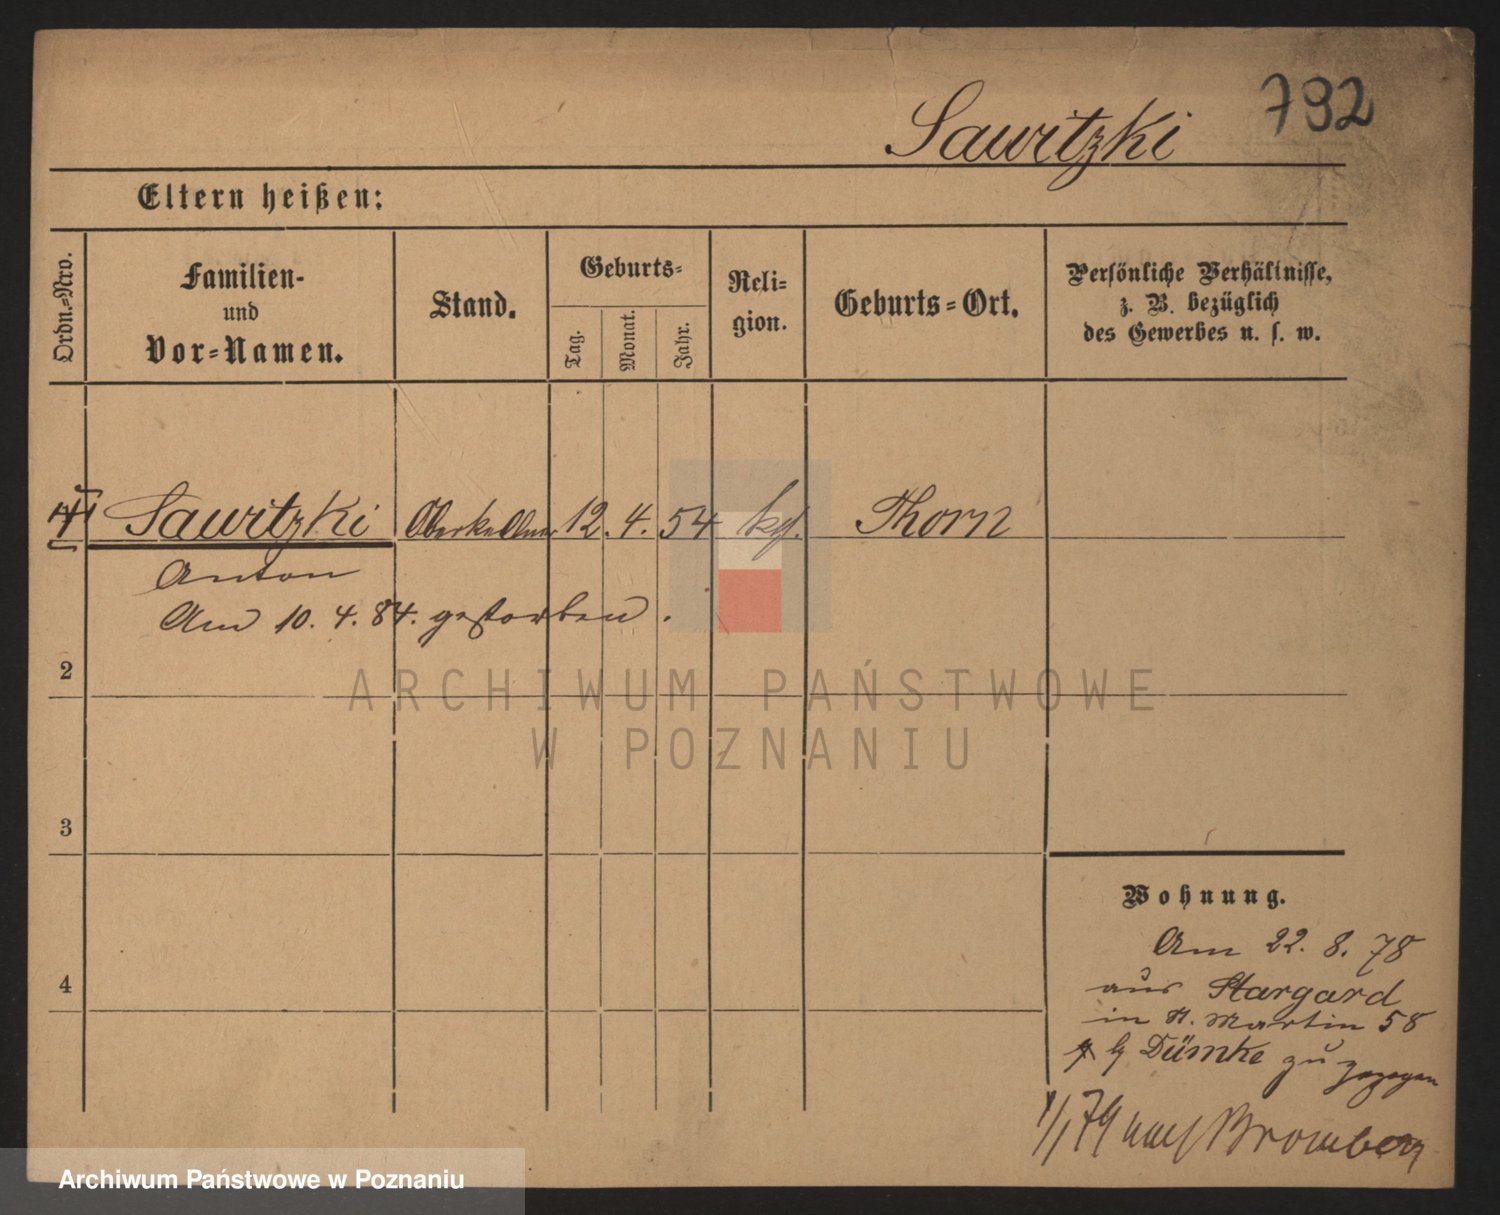 Sawitzki
792
Eltern heißen:
Ordn.=Nro.
Familien-
und
Vor=Namen.
Stand.
Geburts=
Tag.
Monat.
Jahr.
Reli=
gion.
Geburts=Ort.
Persönliche Verhältnisse,
z. B. bezüglich
des Gewerbes u. s. w.
Sawitzki Oberkellner 12. 4. 54 kgl. Thorn
Anton
Am 10. 4. 84. gestorben.
2
3
4
Wohnung.
Am 22. 8. 78
aus Stargard
in St. Martin 58
Dümke zugezogen
1/1 79 nach Bromberg
ARCHIWUM PAŃSTWOWE
W POZNANIU
Archiwum Państwowe w Poznaniu